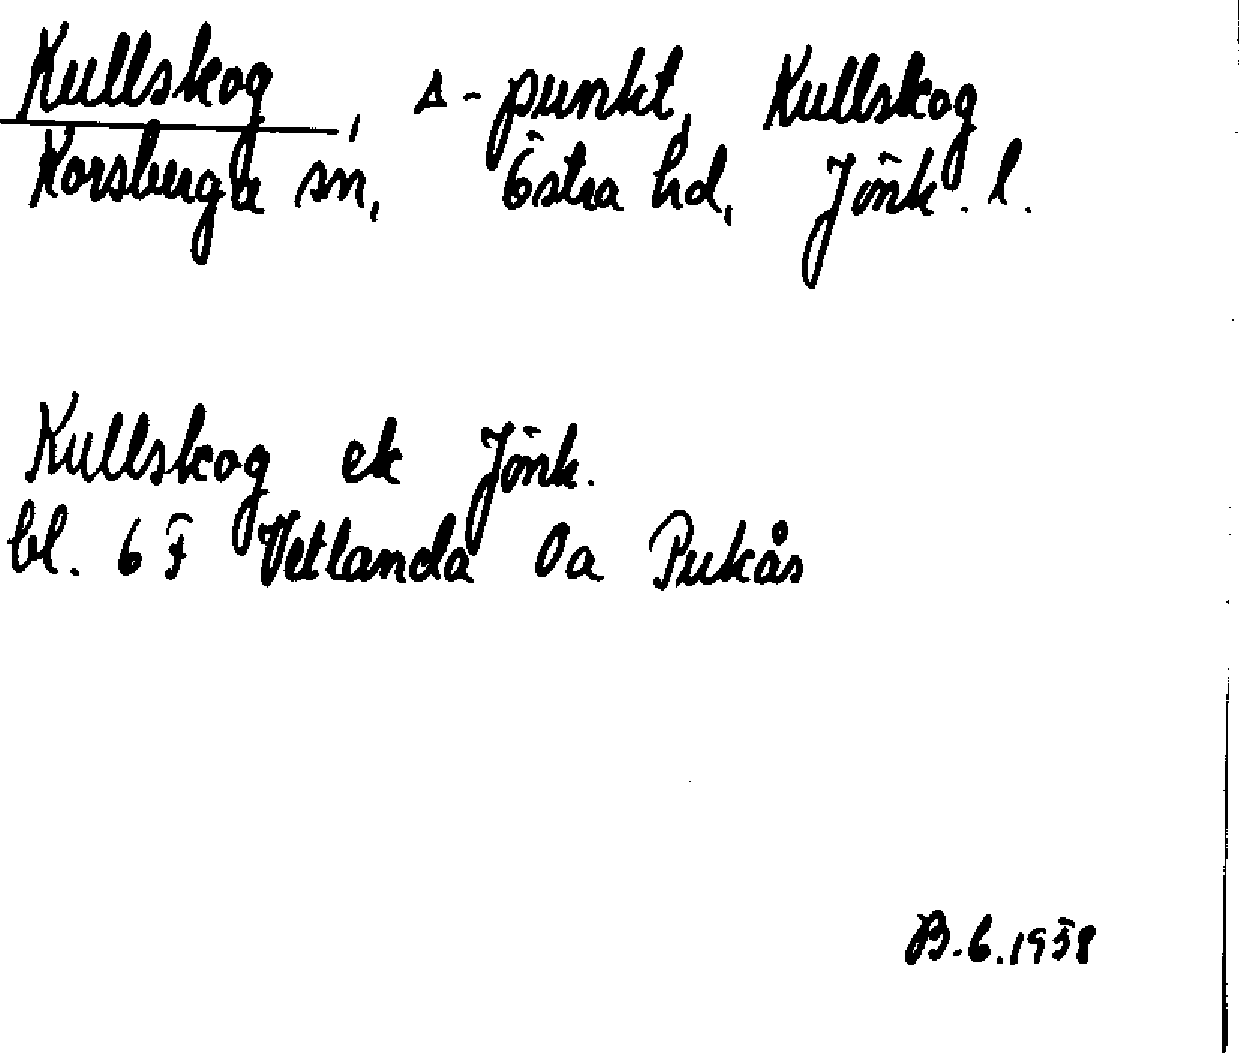 Kullskog, Δ-punkt, Kullskog
Korsberga sn, Östra hd, Jönk. l.
Kullskog ek Jönk.
bl. 6 F Vetlanda 0a Pukås
B.6.1958